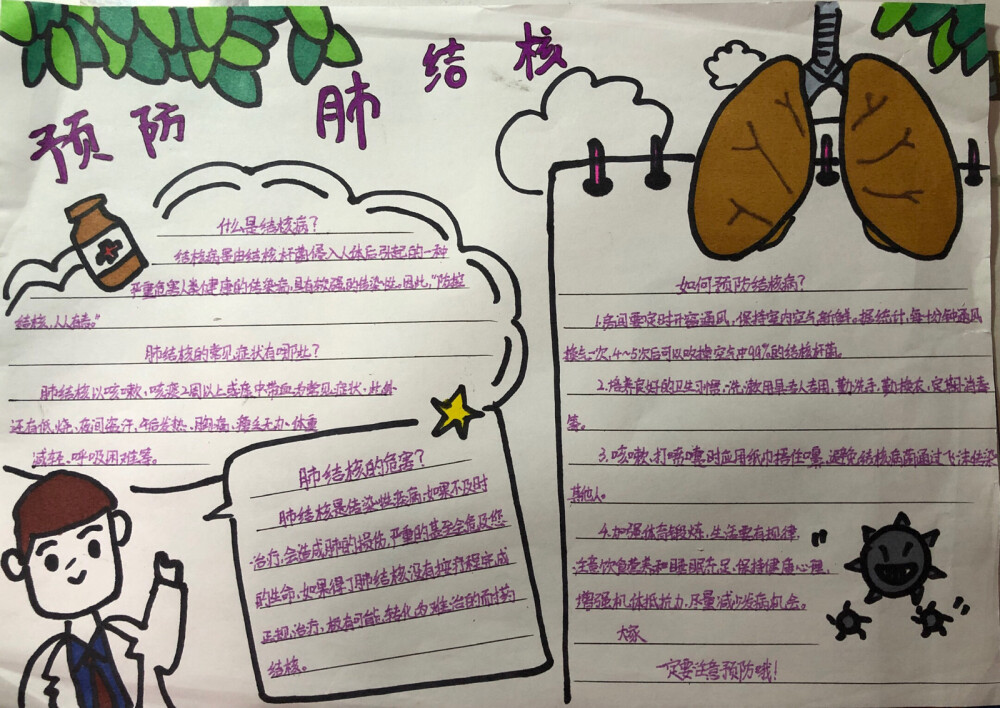 预防 肺结核
什么是结核病?
结核病是由结核杆菌侵入人体后引起的一种
严重危害人类健康的传染病,具有较强的传染性。因此,"防控
结核,人人有责。"
肺结核的常见症状有哪些?
肺结核以咳嗽、咳痰2周以上或痰中带血为常见症状,此外
还有低烧、夜间盗汗、午后发热、胸痛、疲乏无力、体重
减轻、呼吸困难等。
肺结核的危害?
肺结核是传染性疾病,如果不及时
治疗,会造成肺的损伤,严重的甚至会危及您
的生命,如果得了肺结核,没有按疗程完成
正规治疗,极有可能转化为难治的耐药
结核。
如何预防结核病?
1.房间要定时开窗通风,保持室内空气新鲜。据统计,每十分钟通风
换气一次,4~5次后可以吹掉空气中99%的结核杆菌。
2.培养良好的卫生习惯,洗漱用具专人专用,勤洗手、勤换衣、定期消毒
等。
3.咳嗽、打喷嚏时应用纸巾捂住口鼻,避免结核病菌通过飞沫传染
其他人。
4.加强体育锻炼,生活要有规律,
注意饮食营养和睡眠充足,保持健康心理,
增强机体抵抗力,尽量减少发病机会。
大家
一定要注意预防哦!